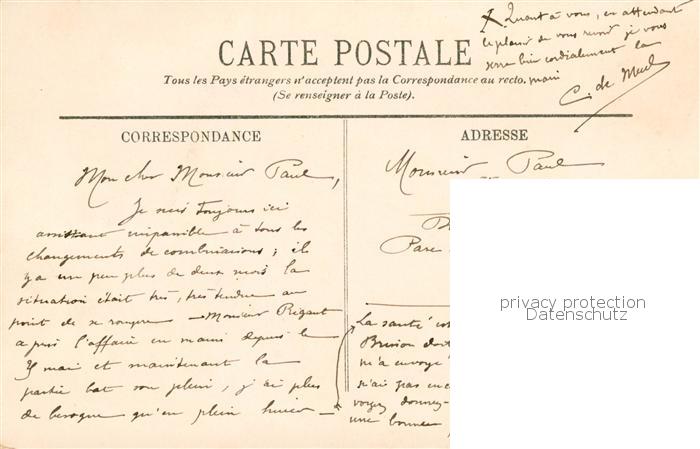 X Quant à vous, en attendant
le plaisir de vous revoir je vous
serre bien cordialement la
main
C. de
CARTE POSTALE
Tous les Pays étrangers n'acceptent pas la Correspondance au recto.
(Se renseigner à la Poste).
CORRESPONDANCE
ADRESSE
Mon cher Monsieur Paul,
Je suis toujours ici
impassible à tous les
changements de combinaisons ; il
y a un peu plus de deux mois la
situation était très, très tendue au
point de se rompre — Monsieur Rigaut
a pris l'affaire en mains depuis le
mai et maintenant la
partie bat son plein, j'ai plus
de besogne qu'en plein hiver —
Monsieur Paul
Parc
La santé
m'a envoyé
n'ai pas
voyez donnez-
une bonne
privacy protection
Datenschutz